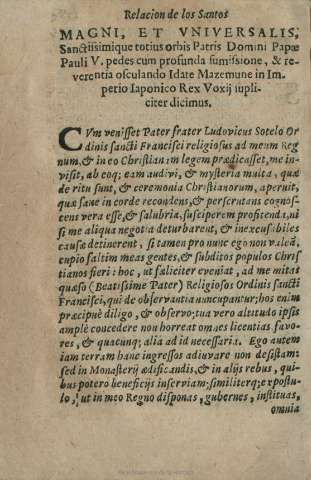 Relacion de los Santos
MAGNI, ET VNIVERSALIS,
Sanctissimique totius orbis Patris Domini Papæ
Pauli V. pedes cum profunda sumissione, & re-
verentia osculando Idate Mazemune in Im-
perio Iaponico Rex Voxij supli-
citer dicimus.
CVm venisset Pater frater Ludovicus Sotelo Or
dinis sancti Francisci religiosus ad meum Reg
num, & in eo Christianam legem prædicasset, me in-
visit, ab eoq; eam audivi, & mysteria multa, quæ
de ritu sunt, & ceremonia Christianorum, aperuit,
quæ sane in corde recondens, & perscrutans cognos-
cens vera esse, & salubria, susciperem profitenda, ni
si me aliqua negotia deturbarent, & inexcusibiles
causæ detinerent, si tamen pro nunc ego non valeã,
cupio saltim meas gentes, & subditos populos Chris
tianos fieri: hoc, ut fæliciter eveniat, ad me mitas
quæso (Beatissime Pater) Religiosos Ordinis sancti
Francisci, qui de observantia nuncupantur; hos enim
præcipuè diligo, & observo; tua vero altitudo ipsis
amplè concedere non horreat omnes licentias favo-
res, & quæcunq; alia ad id necessaria. Ego autem
iam terram hanc ingressos adiuvare non desistam:
sed in Monasterij ædificandis, & in alijs rebus, qui-
bus potero beneficijs inserviam; similiterq; expostu-
lo, ut in meo Regno disponas, gubernes, instituas,
omnia